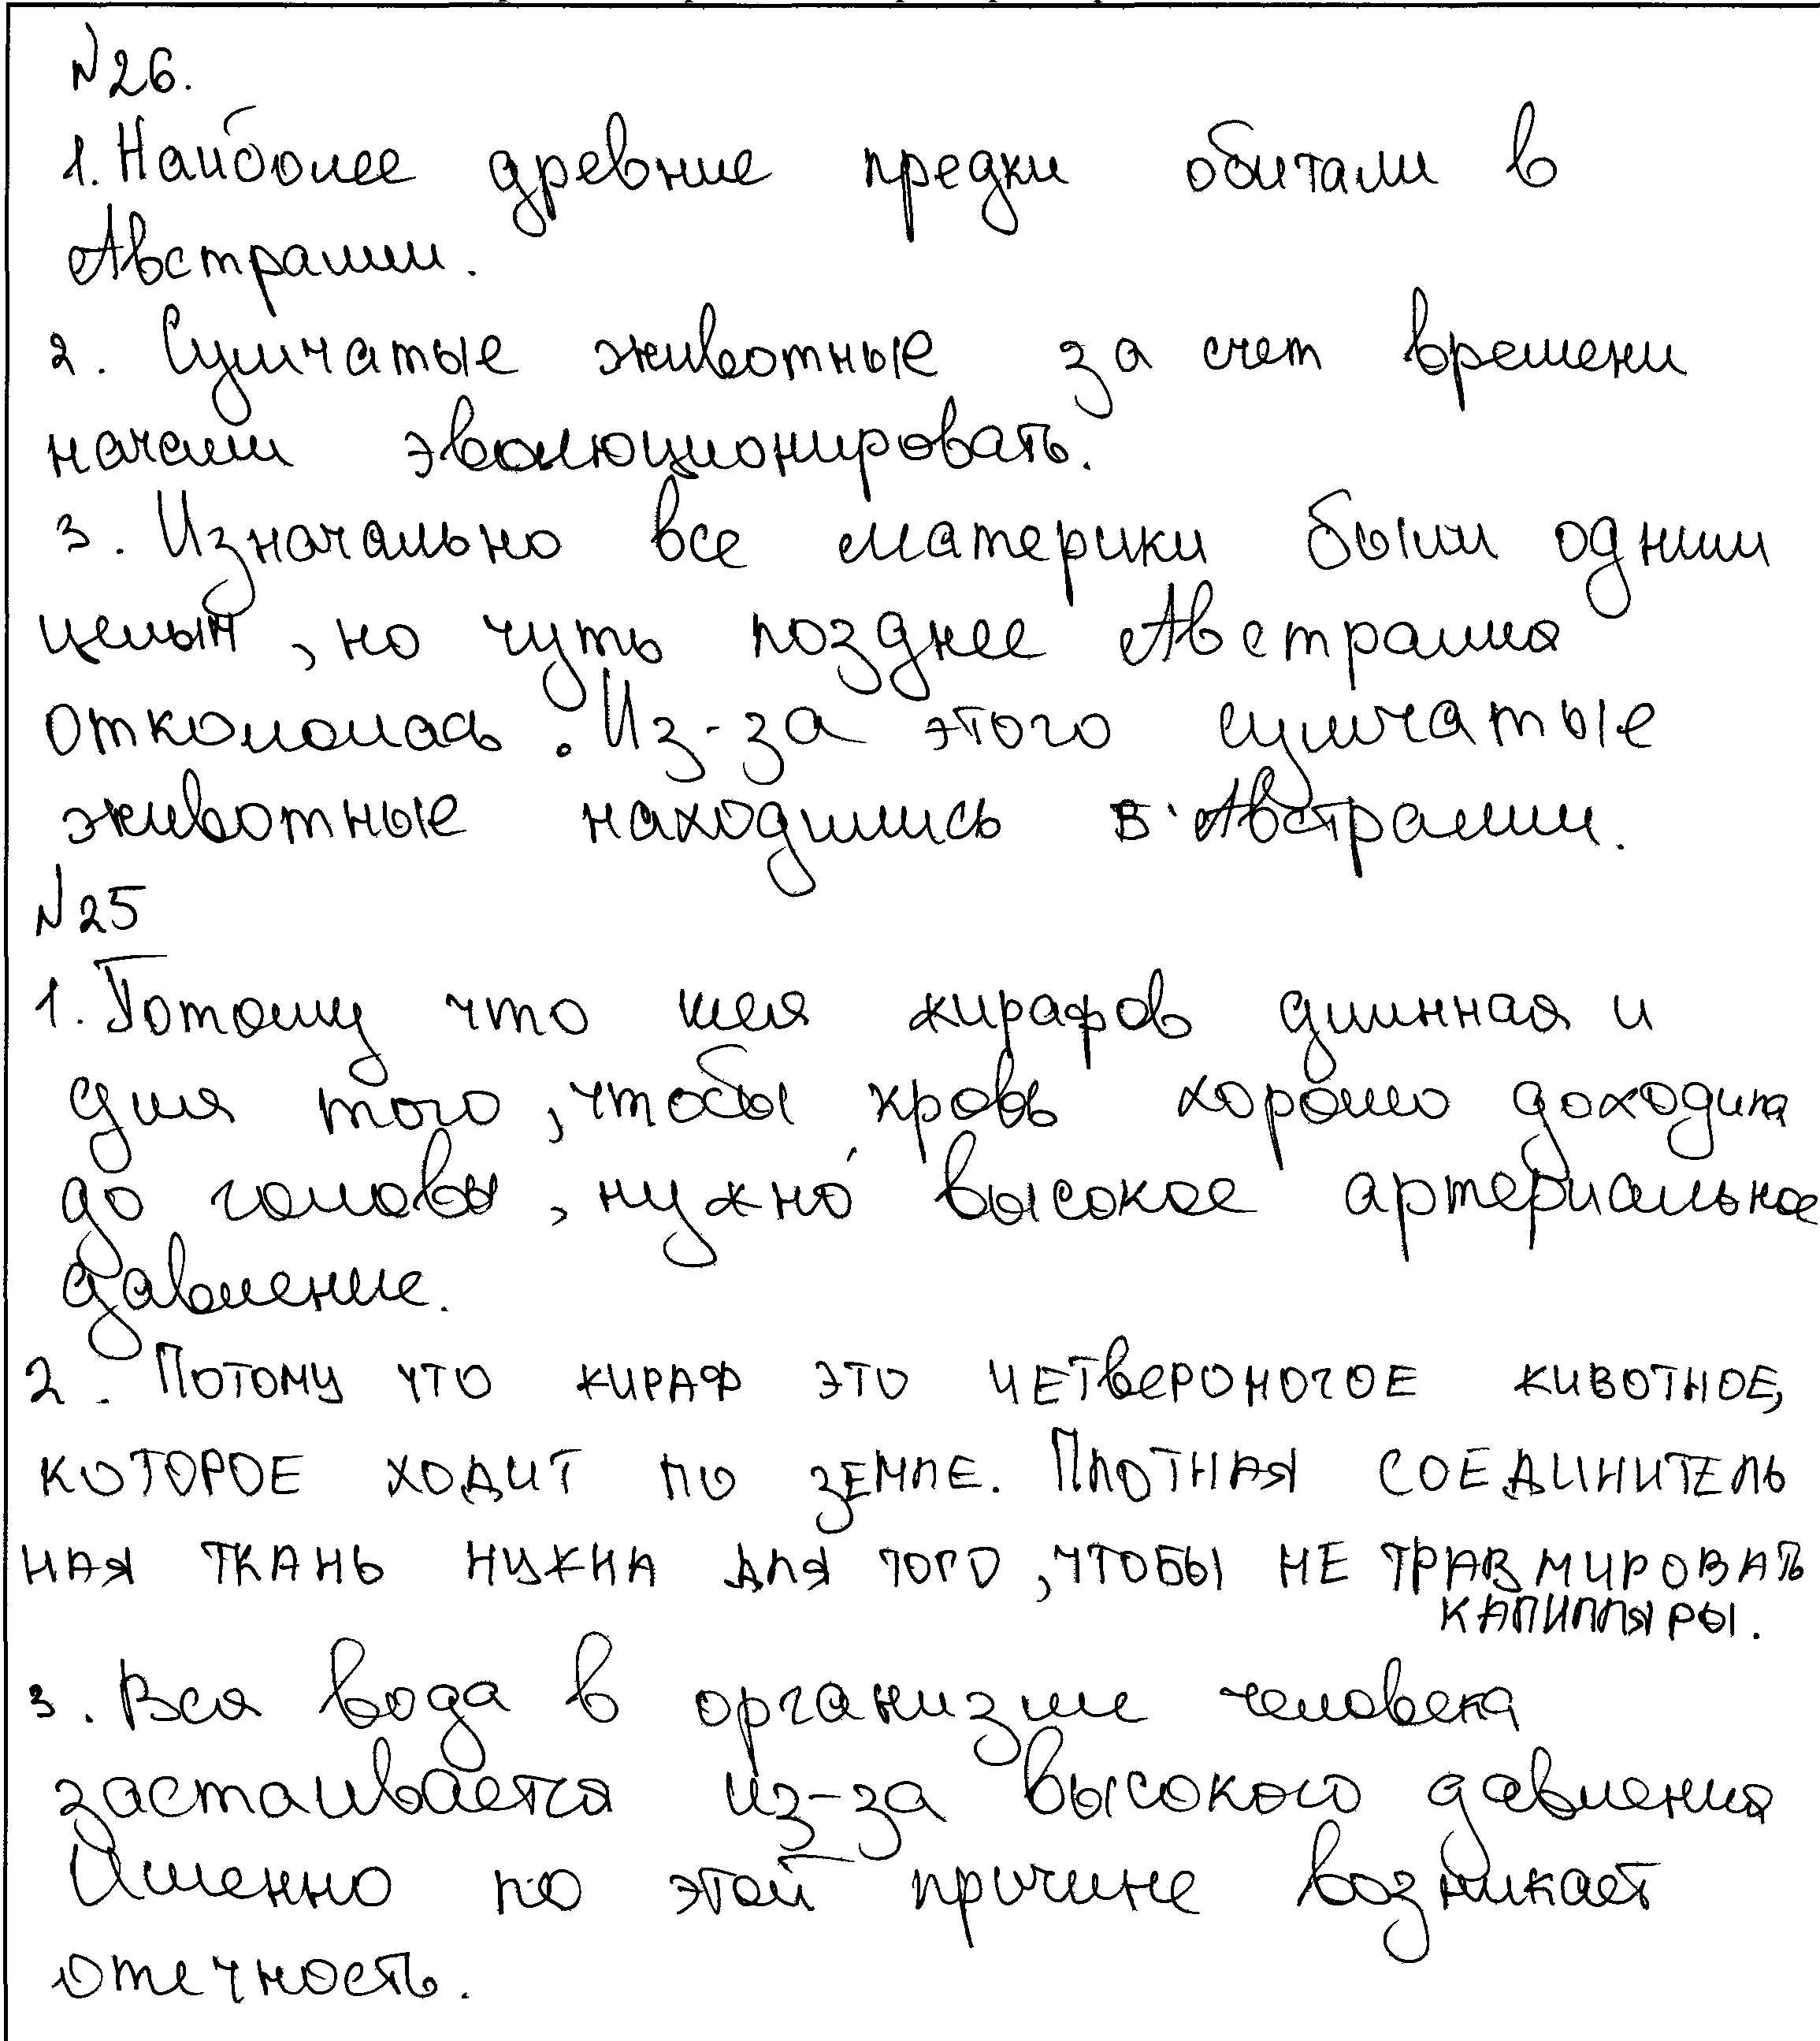 №26.
1. Наиболее древние предки обитали в
Австралии.
2. Сумчатые животные за счет времени
начали эволюционировать.
3. Изначально все материки были одним
целым, но чуть позднее Австралия
откололась. Из-за этого сумчатые
животные находились в Австралии.
№25
1. Потому что шея жирафов длинная и
для того, чтобы кровь хорошо доходила
до головы, нужно высокое артериальное
давление.
2. Потому что жираф это четвероногое животное,
которое ходит по земле. Плотная соединитель
ная ткань нужна для того, чтобы не травмировать
капилляры.
3. Вся вода в организме человека
застаивается из-за высокого давления
Именно по этой причине возникает
отечность.